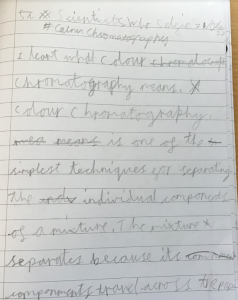 Scientists who solve
# Colour Chromatography
I learnt what colour chromatography
chromatography means. X
colour chromatography.
means is one of the
simplest techniques for separating
the individual components
of a mixture. The mixture
separates because its
components travel across the